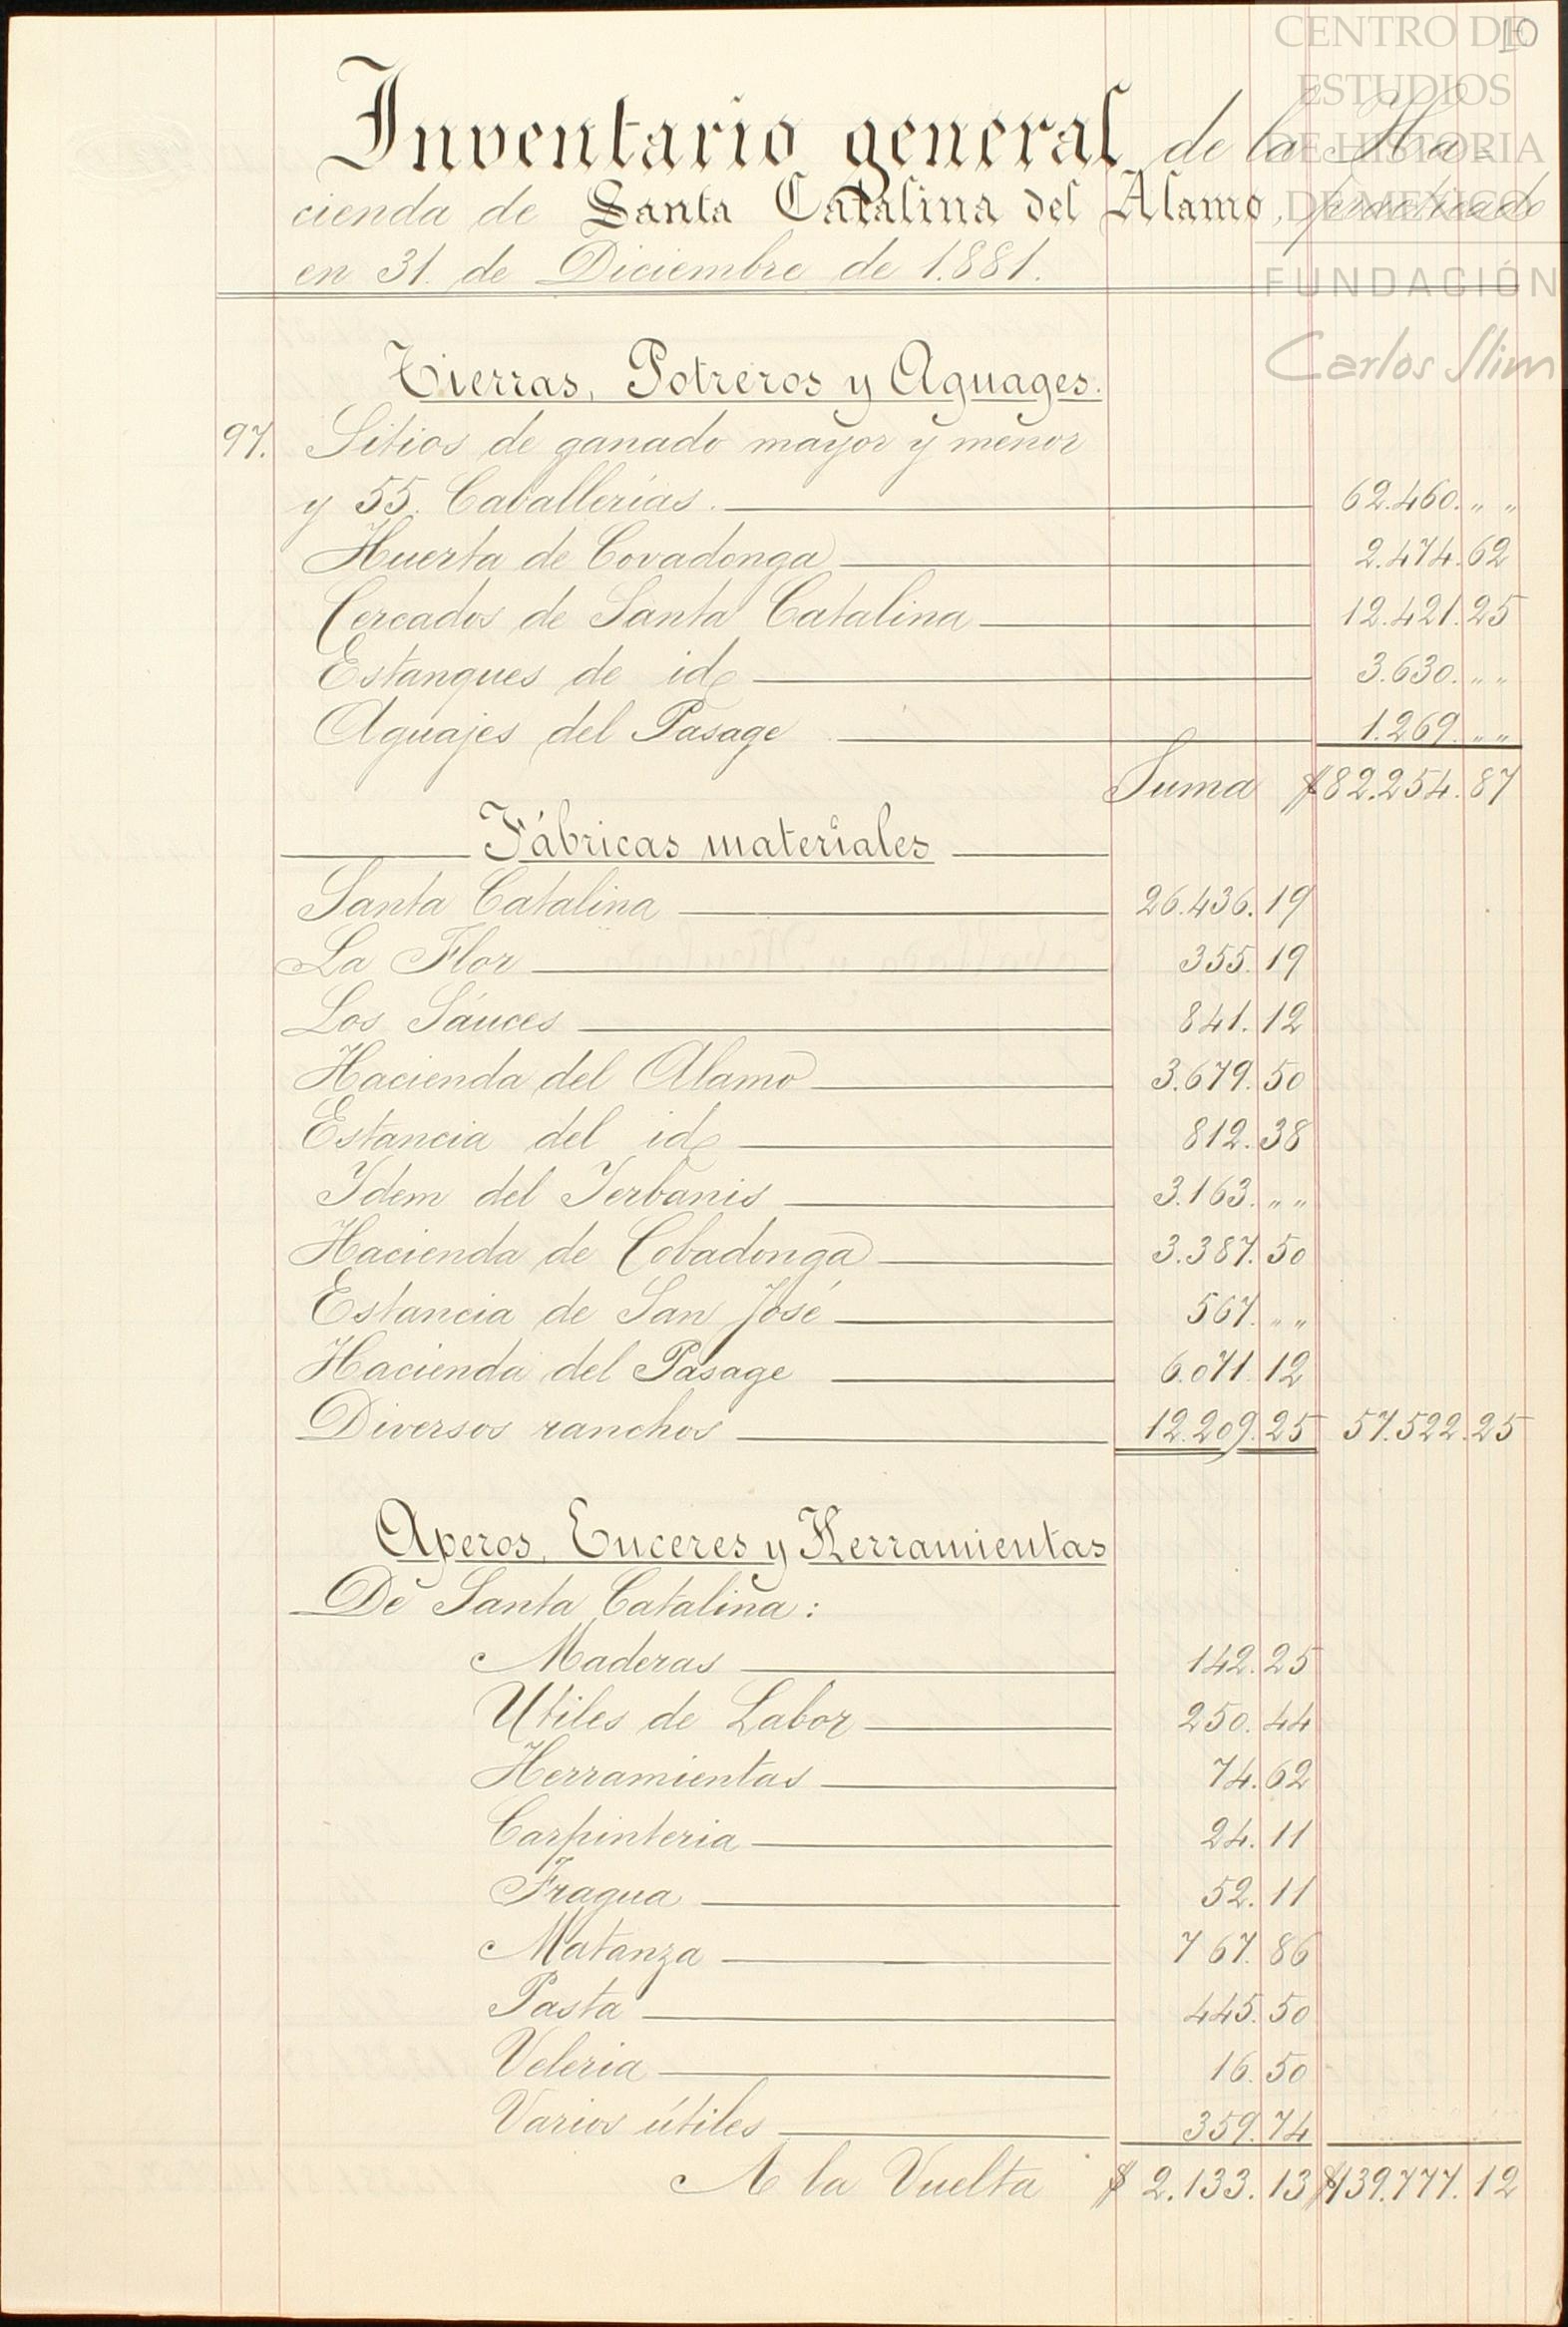 10
CENTRO DE
ESTUDIOS
DE HISTORIA
DE MEXICO
FUNDACIÓN
Carlos Slim
Inventario general de la Ha-
cienda de Santa Catalina del Alamo, practicado
en 31. de Diciembre de 1.881.
Tierras, Potreros y Aguages.
97. Sitios de ganado mayor y menor
y 55. Caballerías. 62.460. " "
Huerta de Covadonga 2.474.62
Cercados de Santa Catalina 12.421.25
Estanques de id 3.630. " "
Aguajes del Pasage 1.269. " "
Suma $82.254.87
Fábricas materiales
Santa Catalina 26.436.19
La Flor 355.19
Los Sáuces 841.12
Hacienda del Alamo 3.679.50
Estancia del id 812.38
Ydem del Yerbanis 3.163. " "
Hacienda de Cobadonga 3.387.50
Estancia de San José 567. " "
Hacienda del Pasage 6.071.12
Diversos ranchos 12.209.25 57.522.25
Aperos, Enceres y Herramientas
De Santa Catalina:
Maderas 142.25
Utiles de Labor 250.44
Herramientas 74.62
Carpinteria 24.11
Fragua 52.11
Matanza 767.86
Pasta 445.50
Veleria 16.50
Varios útiles 359.74
A la Vuelta $2.133.13 $139.777.12